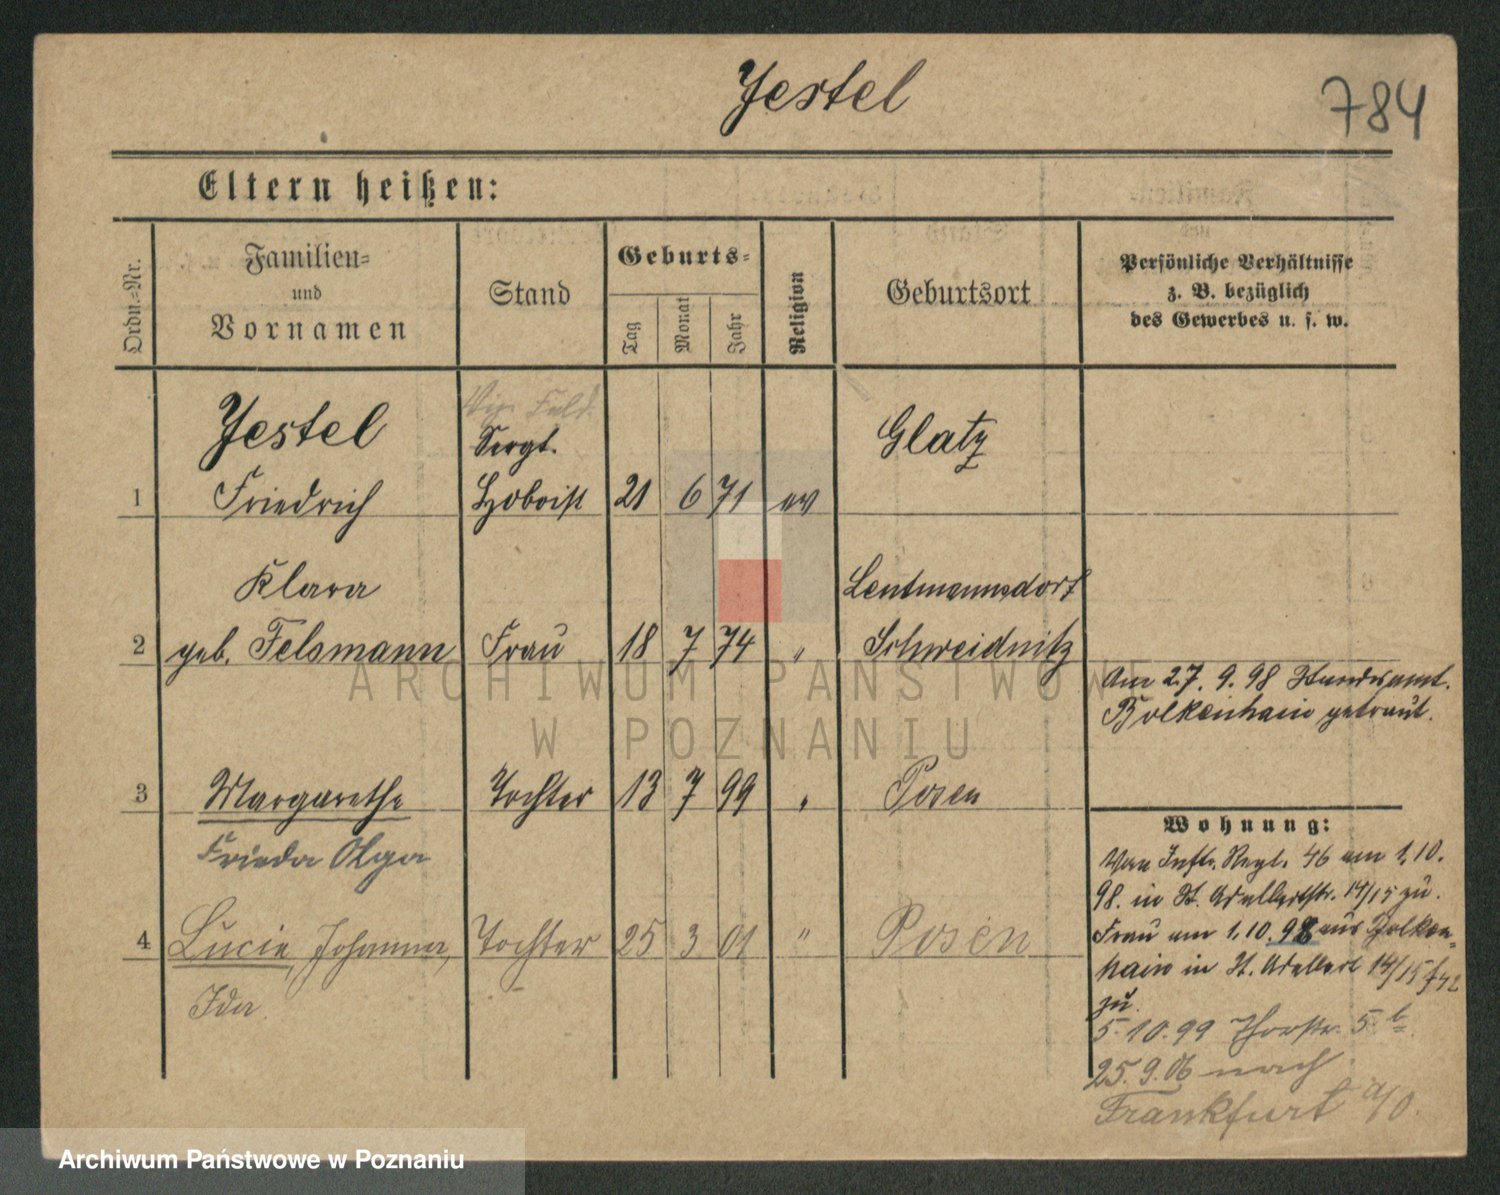 Jestel
784
Eltern heißen:
Ordn.-Nr.
Familien-
und
Vornamen
Stand
Geburts-
Tag
Monat
Jahr
Religion
Geburtsort
Persönliche Verhältnisse
z. B. bezüglich
des Gewerbes u. s. w.
Jestel
Vize Feld.
Sergt.
Glatz
1 Friedrich Hoboist 21 6 71 ev
Klara
Leutmannsdorf
2 geb. Felsmann Frau 18 7 74 " Schweidnitz
Am 27. 9. 98 Standesamt.
Bolkenhain getraut.
3 Margarethe Tochter 13 7 99 " Posen
Frieda Olga
4 Lucie, Johanna, Tochter 25 3 01 " Posen
Ida
Wohnung:
Von Inftr. Regt. 46 am 1.10.
98. in St. Adalbertstr. 14/15 zu.
Frau am 1.10.98 aus Bolken-
hain in St. Adalbert 14/15
zu.
5.10.99 Thorstr. 5 b
25.9.06 nach
Frankfurt a/O.
ARCHIWUM PAŃSTWOWE
W POZNANIU
Archiwum Państwowe w Poznaniu